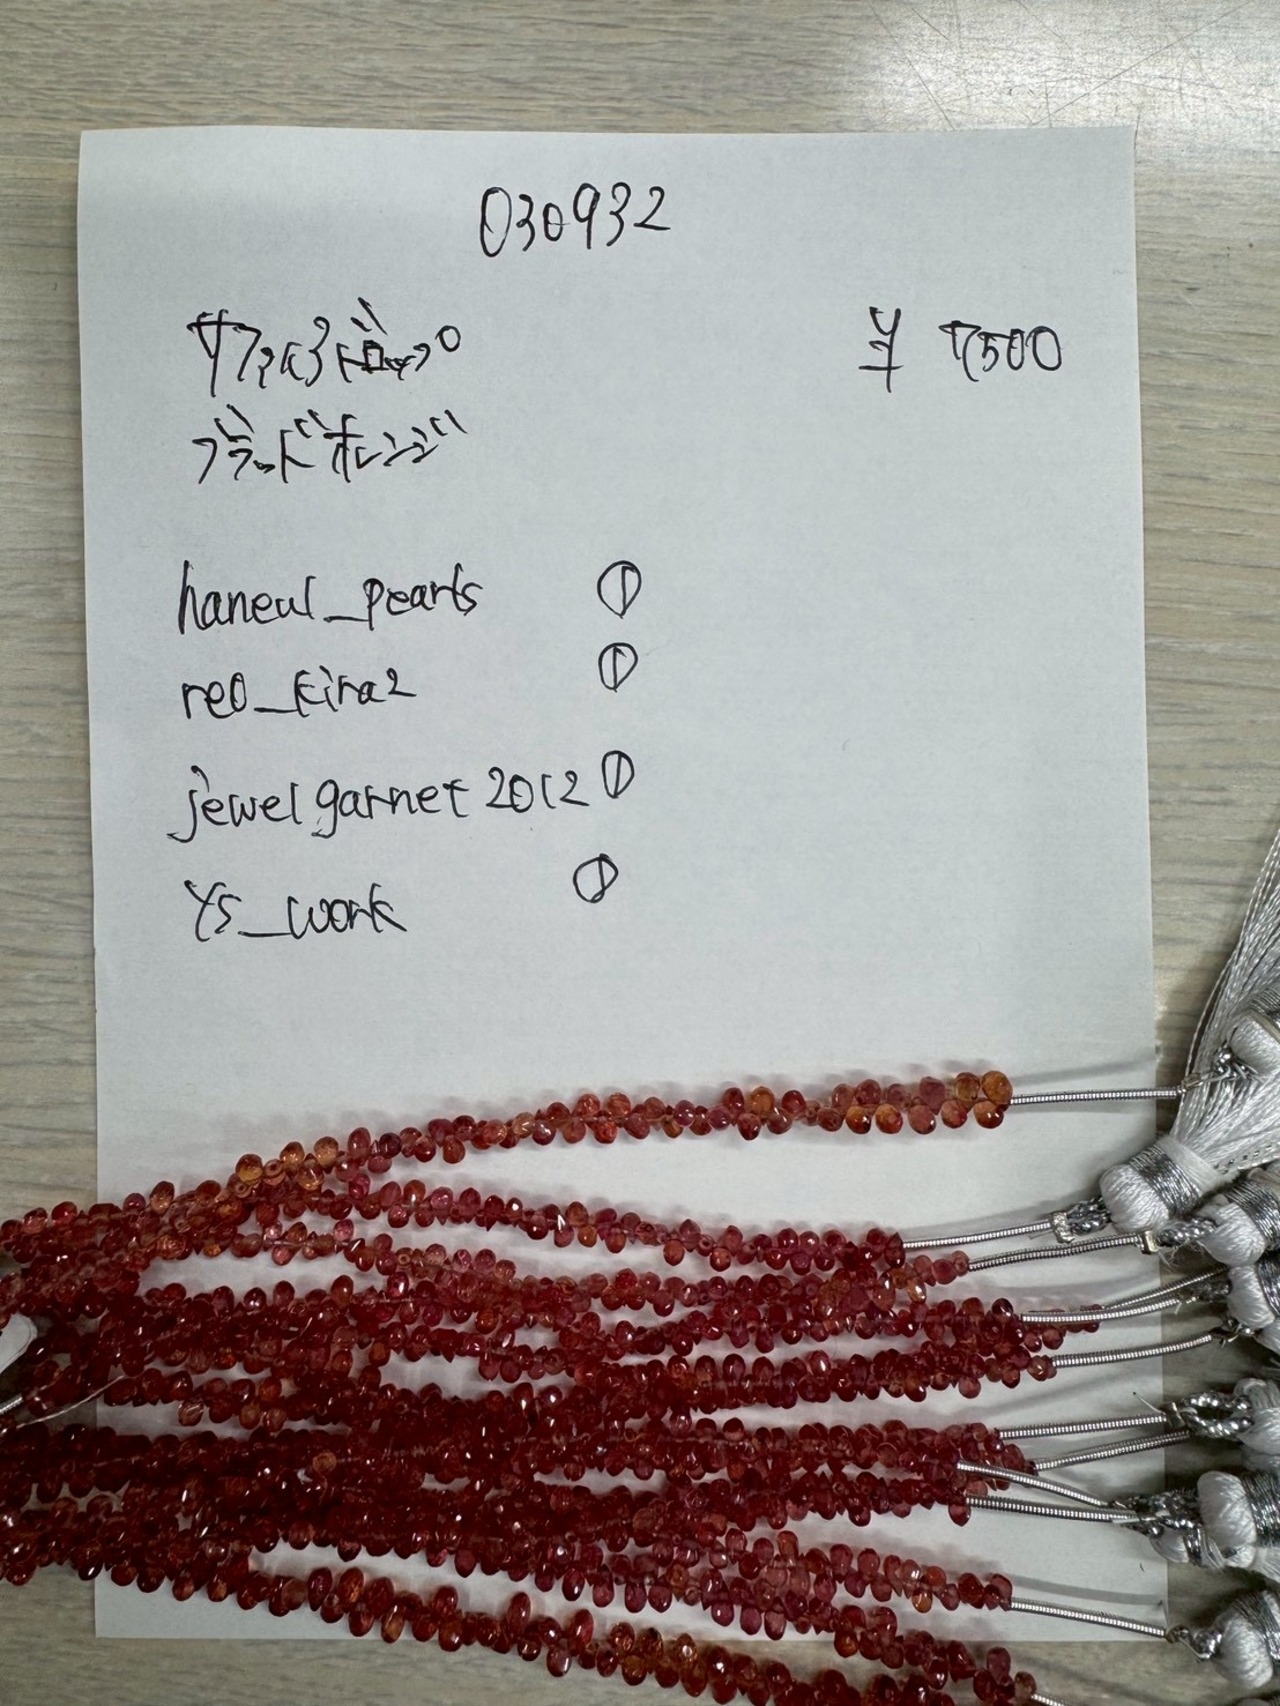 030932
サファイアドロップ ¥7500
ブラッドオレンジ
haneul_pearls ①
reo_kira2 ①
jewelgarnet2012 ①
Ys_work ①